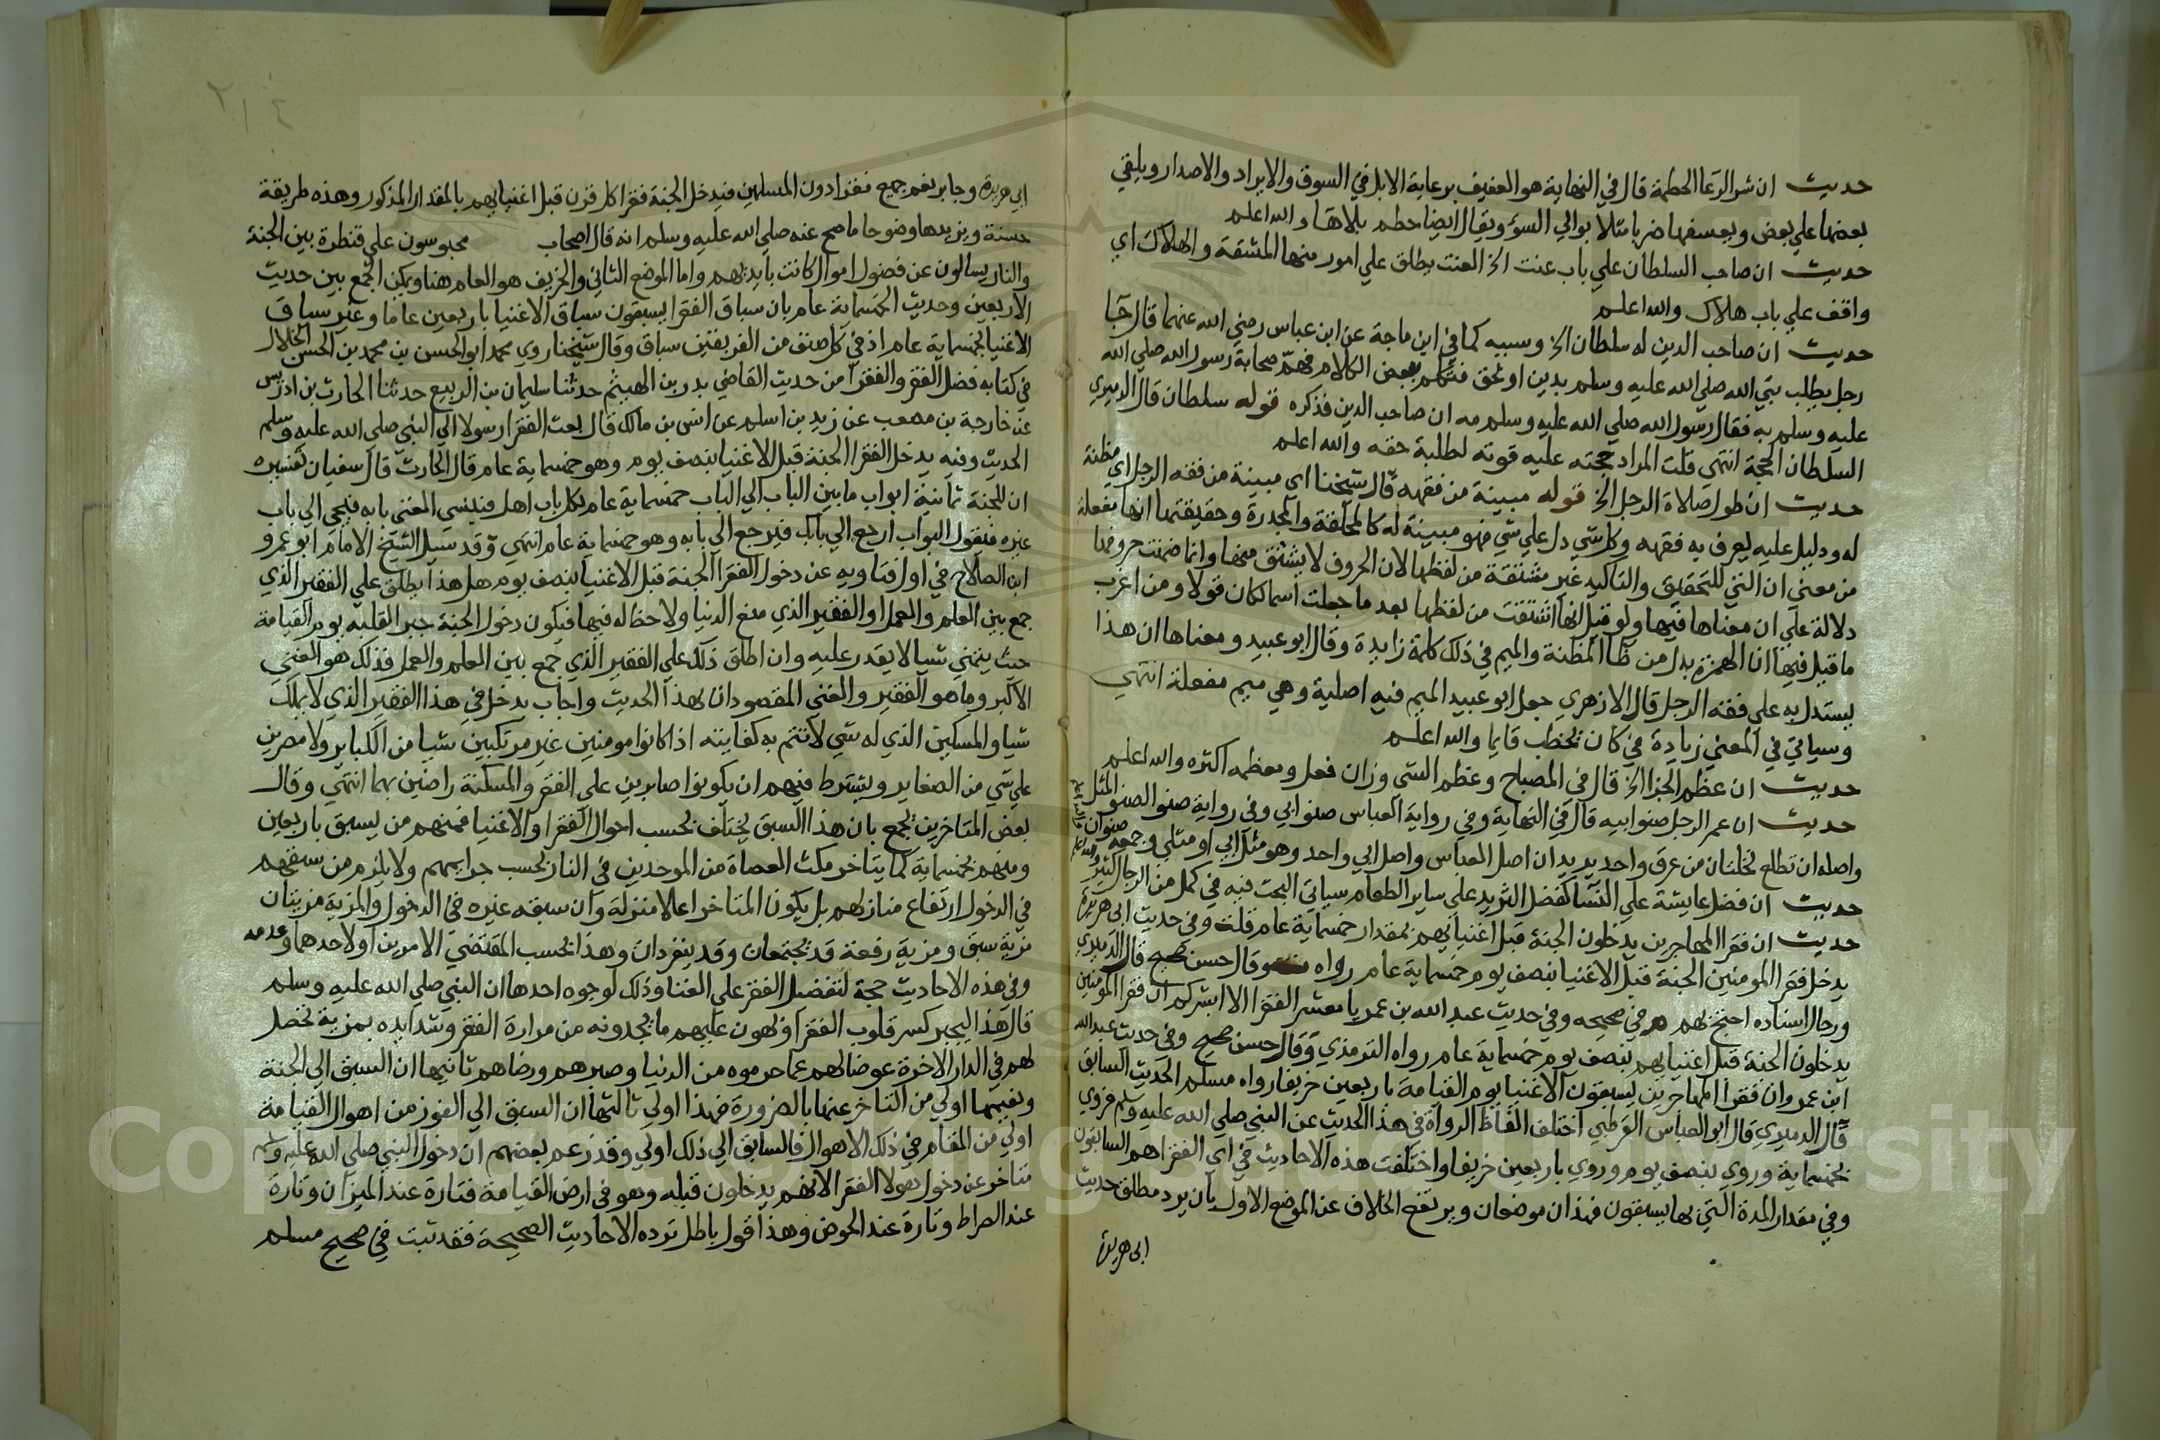 حديث ان شر الرعا الحطمة قال في النهاية هو العنيف برعاية الابل في السوق والايراد والاصدار ويلقي
بعضها علي بعض ويعسفها ضربا مثلا بوالي السؤ ويقال ايضا حطم بلاها والله اعلم
حديث ان صاحب السلطان علي باب عنت الخ العنت يطلق علي امور منها المشقة والهلاك اي
واقف علي باب هلاك والله اعلم
حديث ان صاحب الدين له سلطان الخ وسببه كما في ابن ماجة عن ابن عباس رضي الله عنهما قال جآ
رجل يطلب نبي الله صلي الله عليه وسلم بدين او بحق فتكلم ببعض الكلام فهم صحابة رسول الله صلي الله
عليه وسلم به فقال رسول الله صلي الله عليه وسلم مه ان صاحب الدين فذكره قوله سلطان قال الدميري
السلطان الحجة انتهي قلت المراد حجته عليه قوته لطلبة حقه والله اعلم
حديث ان طول صلاة الرجل الخ قوله مبينة من فقهه قال شيخنا اي مبينة من فقه الرجل اي مظنة
له ودليل عليه يعرف به فقهه وكل شي دل علي شي فهو مبينة له كالمخلقة والمجدرة وحقيقتها انها مفعلة
من معني ان التي للتحقيق والتاكيد غير مشتقة من لفظها لان الحروف لا يشتق منها وانما ضمنت حروفها
دلالة علي ان معناها فيها ولو قيل انها اشتقت من لفظها بعد ما جعلت اسما لكان قولا ومن اغرب
ما قيل فيها ان الهمزة بدل من ظا المظنة والميم في ذلك كلمة زايدة وقال ابو عبيد ومعناها ان هذا
يستدل به علي فقه الرجل قال الازهري جعل ابو عبيد الميم فيه اصلية وهي ميم مفعلة انتهي
وسياتي في المعني زيادة في كان يخطب قايما والله اعلم
حديث ان عظم الجزا الخ قال في المصباح وعظم الشي وزان فعل ومعظمه اكثره والله اعلم
حديث ان عم الرجل صنو ابيه قال في النهاية وفي رواية العباس صنو ابي وفي رواية صنو الصنو المثل
واصله ان تطلع نخلتان من عرق واحد يريد ان اصل العباس واصل ابي واحد وهو مثل ابي او مثلي وجمعه صنوان
حديث ان فضل عايشة علي النسا كفضل الثريد علي ساير الطعام سياتي البحث فيه في كمل من الرجال كثير
حديث ان فقرا المهاجرين يدخلون الجنة قبل اغنيايهم بمقدار خمسماية عام قلت وفي حديث ابي هريرة
يدخل فقرا المومنين الجنة قبل الاغنيا بنصف يوم خمسماية عام رواه وقال حسن صحيح قال الدميري
ورجال اسناده احتج بهم م في صحيحه وفي حديث عبد الله بن عمر يا معشر الفقرا الا ابشركم ان فقرا المومنين
يدخلون الجنة قبل اغنيايهم بنصف يوم خمسماية عام رواه الترمذي وقال حسن صحيح وفي حديث عبد الله
ابن عمر وان فقرا المهاجرين يسبقون الاغنيا يوم القيامة باربعين خريفا رواه مسلم الحديث السابق
قال الدميري قال ابو العباس القرطبي اختلف الفاظ الرواة في هذا الحديث عن النبي صلي الله عليه وسلم فروي
بخمسماية وروي بنصف يوم وروي باربعين خريفا واختلفت هذه الاحاديث في اي الفقرا هم السابقون
وفي مقدار المدة التي بها يسبقون فهذان موضعان ويرتفع الخلاف عن الموضع الاول بان يرد مطلق حديث
ابي هريرة
٢١٤
ابي هريرة وجابر يعم جميع فقرا دون المسلمين فيدخل الجنة فقرا كل قرن قبل اغنيايهم بالمقدار المذكور وهذه طريقة
حسنة ويزيدها وضوحا ما صح عنه صلي الله عليه وسلم انه قال اصحاب محبوسون علي قنطرة بين الجنة
والنار يسالون عن فضول اموال كانت بايديهم واما الموضع الثاني والخريف هو العام هنا ويمكن الجمع بين حديث
الاربعين وحديث الخمسماية عام بان سباق الفقرا يسبقون سباق الاغنيا باربعين عاما وغير سباق
الاغنيا بخمسماية عام اذ في كل صنف من الفريقين سباق وقال شيخنا روي محمد ابو الحسن بن محمد بن الحسن الخلال
في كتابه فضل الفقر والفقرا من حديث القاضي بدر بن الهيثم حدثنا سليمان بن الربيع حدثنا الحارث بن ادريس
عن خارجة بن مصعب عن زيد بن اسلم عن انس بن مالك قال بعث الفقرا رسولا الي النبي صلي الله عليه وسلم
الحديث وفيه يدخل الفقرا الجنة قبل الاغنيا بنصف يوم وهو خمسماية عام قال الحارث قال سفيان تفسيره
ان للجنة ثمانية ابواب ما بين الباب الي الباب خمسماية عام لكل باب اهل فينسي المغني بابه فيجي الي باب
غيره فيقول البواب ارجع الي بابك فيرجع الي بابه وهو خمسماية عام انتهي وقد سيل الشيخ الامام ابو عمرو
ابن الصلاح في اول فتاويه عن دخول الفقرا الجنة قبل الاغنيا بنصف يوم هل هذا يطلق علي الفقير الذي
جمع بين العلم والعمل او الفقير الذي منع الدنيا ولا حظ له فيها فيكون دخول الجنة جبر القلبه يوم القيامة
حيث يتمني شيا لا يقدر عليه وان اطلق ذلك علي الفقير الذي جمع بين العلم والعمل فذلك هو الغني
الاكبر وما هو الفقير والغني المقصودان بهذا الحديث واجاب يدخل في هذا الفقير الذي لا يملك
شيا والمسكين الذي له شي لا تتم به كفايته اذا كانوا مومنين غير مرتكبين شيا من الكباير ولا مصرين
علي شي من الصغاير ويشترط فيهم ان يكونوا صابرين علي الفقر والمسكنة راضين بهما انتهي وقال
بعض المتاخرين يجمع بان هذا السبق يختلف بحسب احوال الفقرا والاغنيا فمنهم من يسبق باربعين
ومنهم بخمسماية كما يتاخر مكث العصاة من الموحدين في النار بحسب جرايمهم ولا يلزم من سبقهم
في الدخول ارتفاع منازلهم بل يكون المتاخر اعلا منزلة وان سبقه غيره في الدخول والمزية مزيتان
مزية سبق ومزية رفعة قد يجتمعان وقد ينفردان وهذا بحسب المقتضي الامرين او لاحدهما وعدمه
وفي هذه الاحاديث حجة لتفضيل الفقر علي الغنا وذلك لوجوه احدها ان النبي صلي الله عليه وسلم
قال هذا ليجبر كسر قلوب الفقرا ويهون عليهم ما يجدونه من مرارة الفقر وشدايده بمزية تحصل
لهم في الدار الاخرة عوضا لهم عما حرموه من الدنيا وصبرهم ورضاهم ثانيها ان السبق الي الجنة
ونعيمها اولي من التاخر عنها بالضرورة فهذا اولي ثالثها ان السبق الي الفوز من اهوال القيامة
اولي من المقام في ذلك الاهوال فالسابق الي ذلك اولي وقد زعم بعضهم ان دخول النبي صلي الله عليه وسلم
متاخر عن دخول هولا الفقرا لانهم يدخلون قبله وهو في ارض القيامة فتارة عند الميزان وتارة
عند الصراط وتارة عند الحوض وهذا قول باطل ترده الاحاديث الصحيحة فقد ثبت في صحيح مسلم